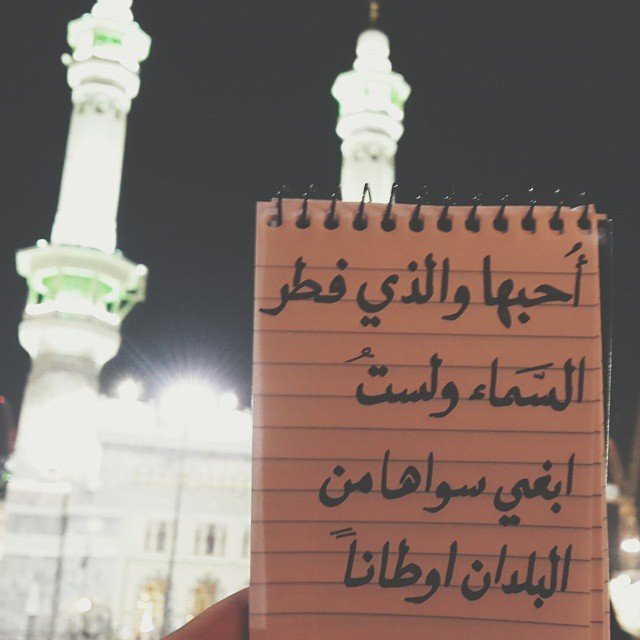 أُحبها والذي فطر
السَّماء ولستُ
ابغي سواها من
البلدان اوطاناً